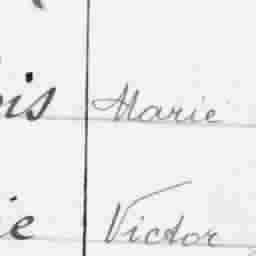 is Marie
ie Victor